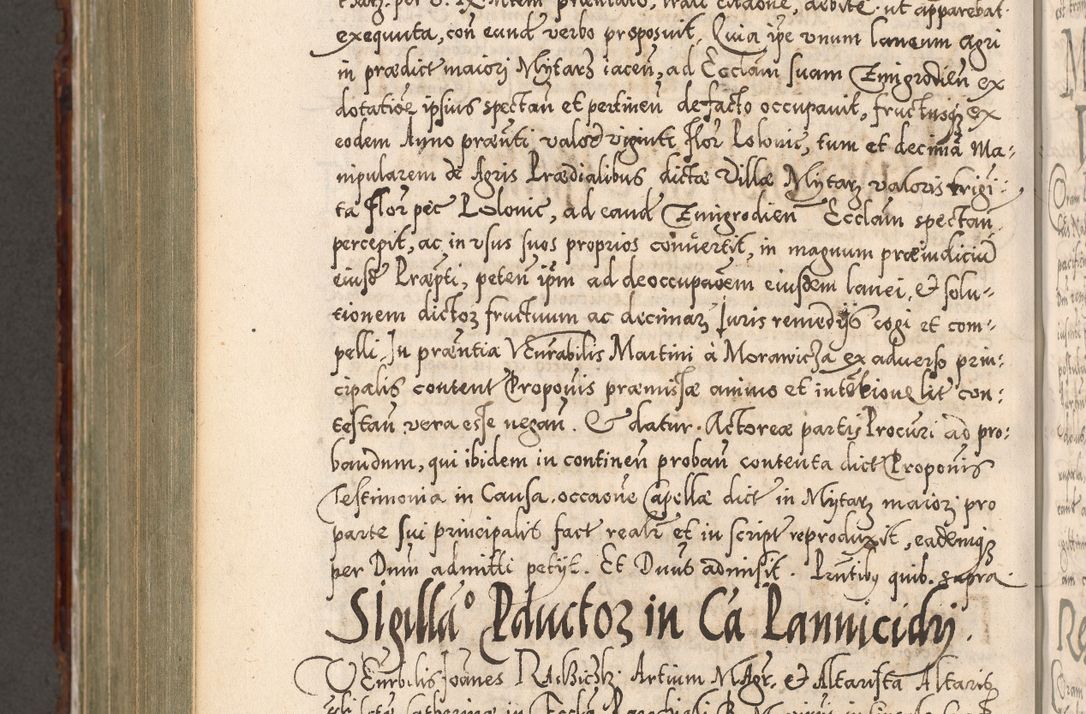 exequuta, coñ eund verbo proposuit, Quia ipe vnum laneum Agri
in prædict maiori Mytarz iaceñ, ad Eccĺam suam Zmigrodieñ ex
dotatioe ipsius spectañ et pertineñ de facto occupauit, fructusqz ex
eodem Anno præñti valor viginti flor Polonic, tum et decimã Ma-
nipularem de Agris Prædialibus dictæ Villæ Mytarz valoris trigi-
ta flor pec Polonic, ad eand Zmigrodieñ Eccĺam spectañ
percepit, ac in vsus suos proprios conuertit, in magnum præiudiciũ
eiusd Præpti, peteñ ipm ad deoccupaõem eiusdem lanei, & solu-
tionem dictoz fructuum ac decimaz Iuris remedijs cogi et com-
pelli. In præntia Venerabilis Martini à Morawicza ex aduerso prin-
cipalis content Proponis præmissæ animo et intentione lit con-
testañ vera esse negañ. & datur Actoreæ partis Procuri ad pro-
bandum, qui ibidem in contineñ probañ contenta dict Proponis
Testimonia in Causa occaõne Capellæ dict in Mytarz maiori pro
parte sui principalis fact realr et in script reproduxit, eademqz
per Dnum admitti petyt. Et Dnus admisit. Pñtibus quib. supra.
Sigillaº Pductoz in Cã Pannicidij.
VEnrbilis Joannes Artium MAgr. & Altarista Altaris